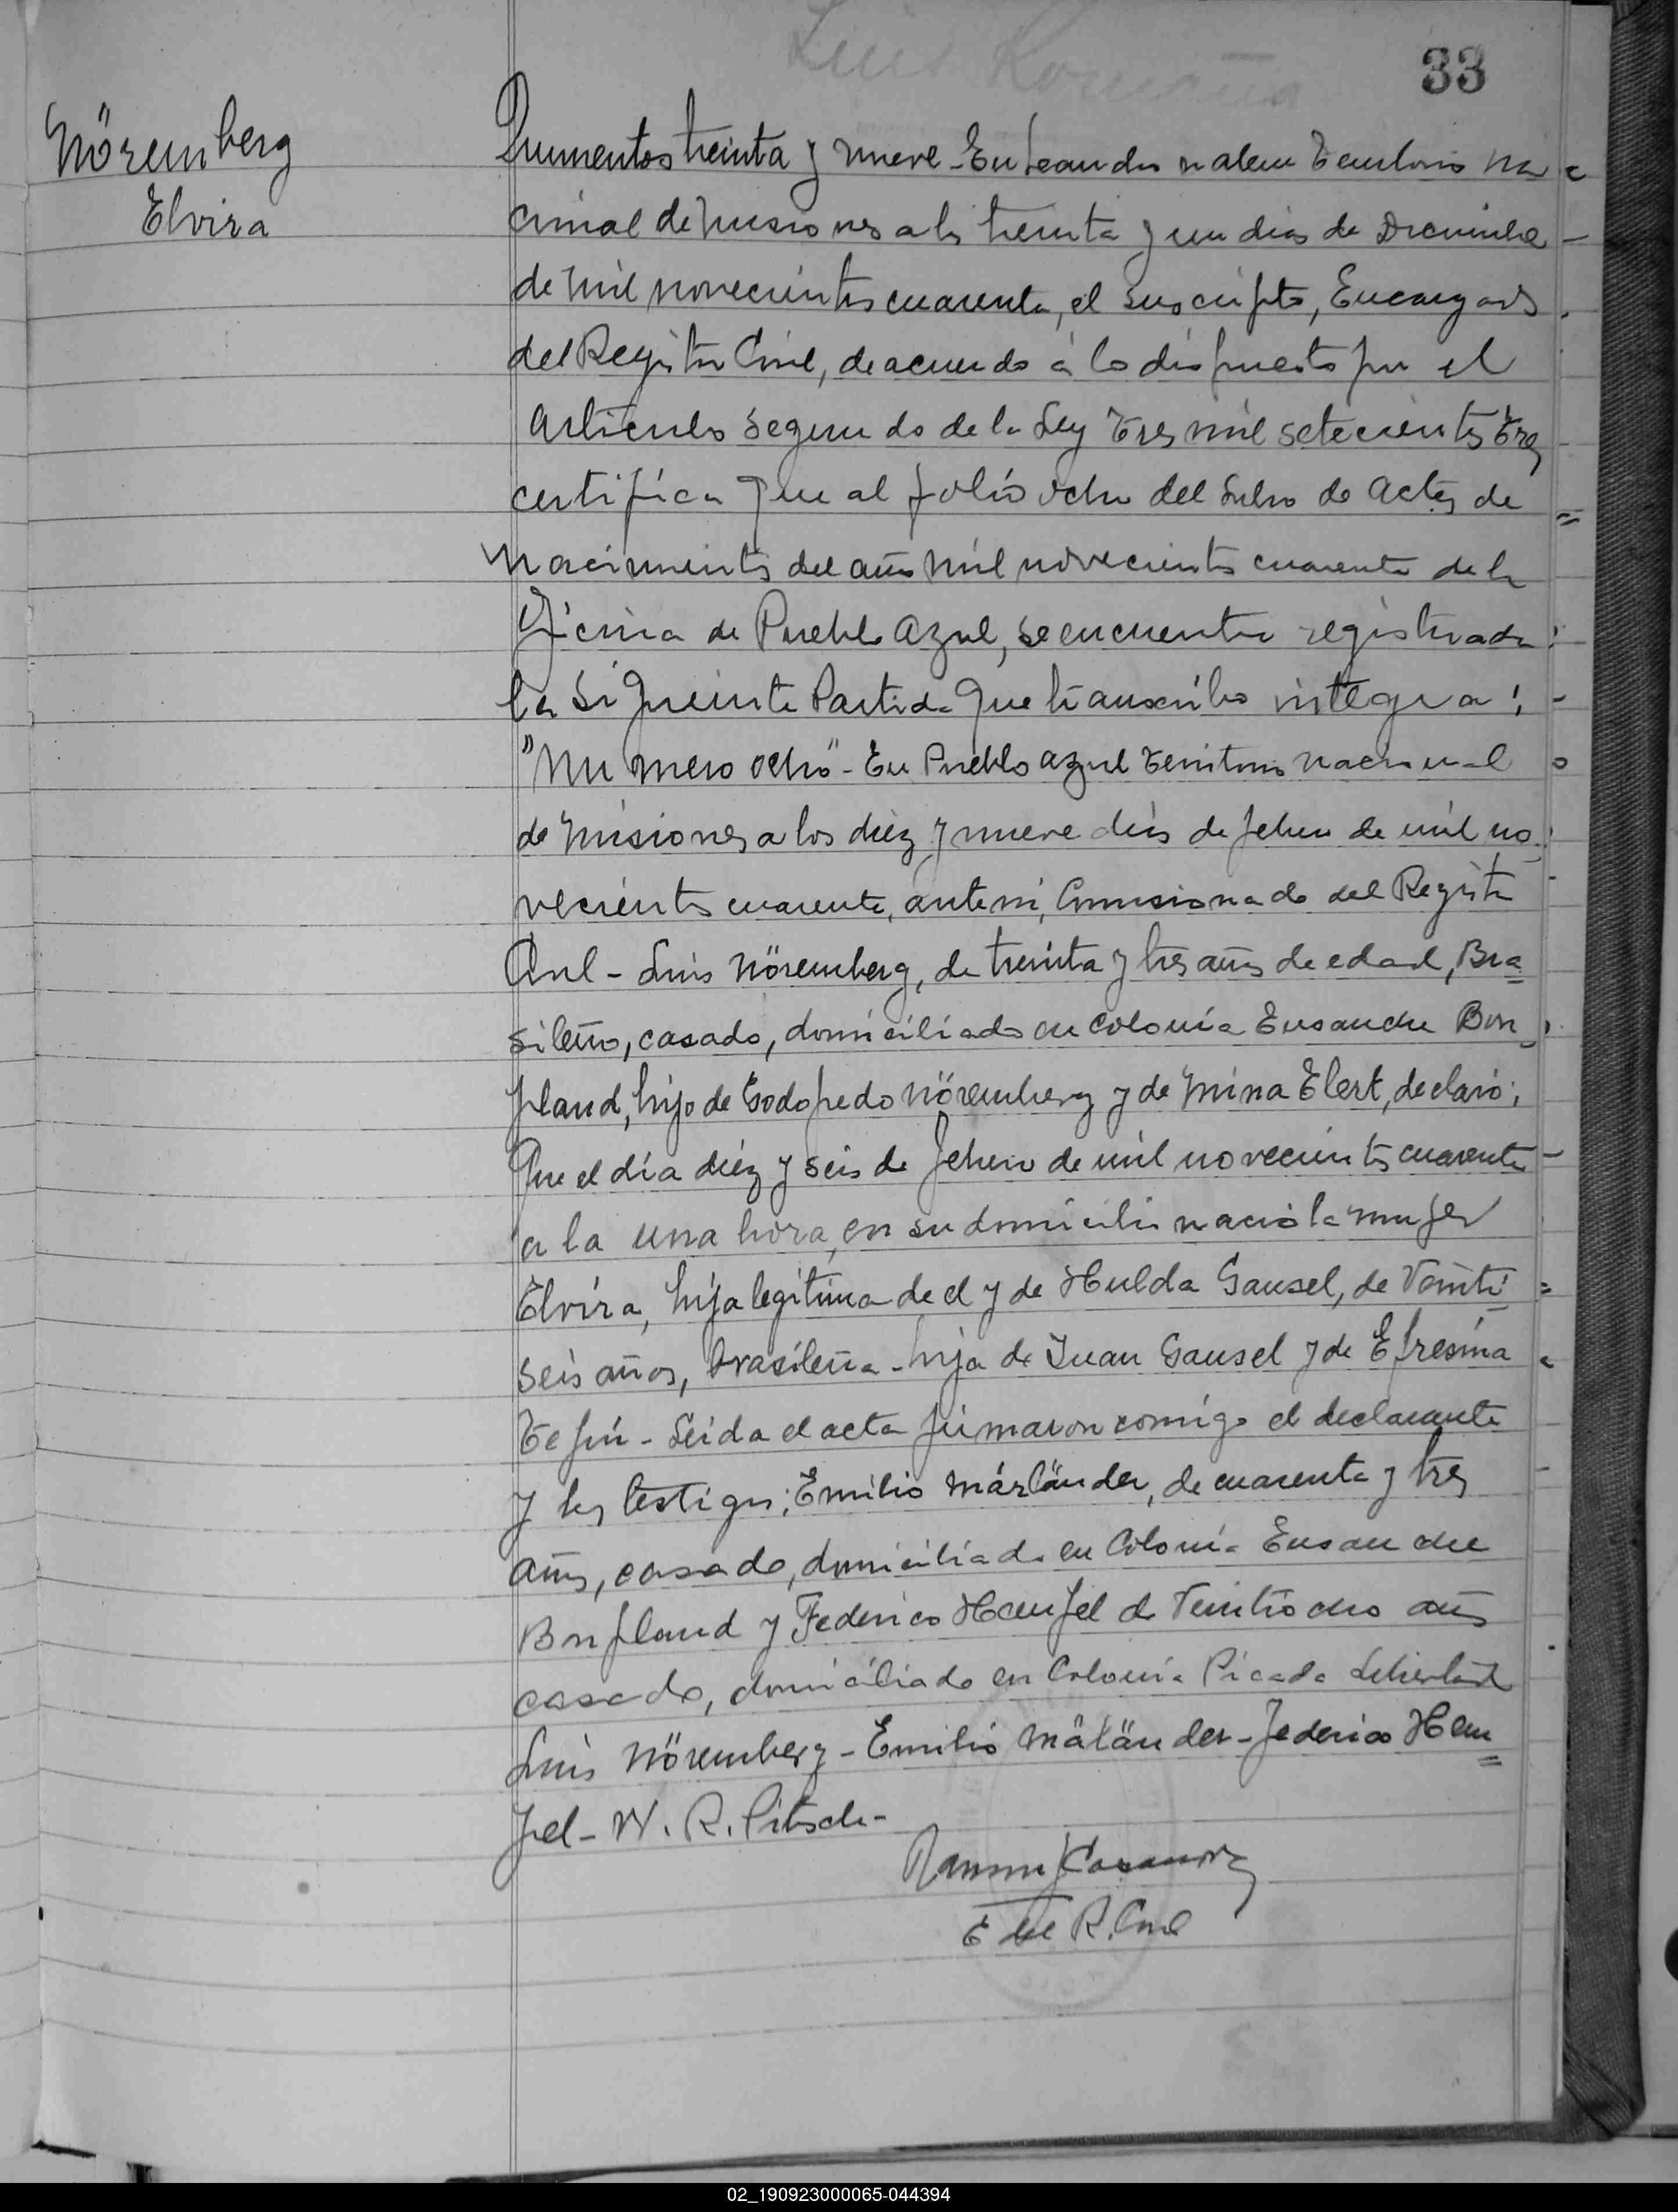 Luis Romaña
33
Nöremberg
Elvira
Quinientos treinta y nueve - En Leandro N alem Territorio Na
cional de Misiones a los treinta y un dias de Diciembre
de mil novecientos cuarenta, el suscripto, Encargado
del Registro Civil, de acuerdo á lo dispuesto por el
Artículo Segundo de la Ley Tres mil setecientos tres
certifica que al folio ocho del Libro de Actas de
Nacimientos del año mil novecientos cuarenta de la
Oficina de Pueblo Azul, se encuentra registrada
la Siguiente Partida que transcribo integra:
"Numero ocho" - En Pueblo Azul Territorio Nacional
de Misiones a los diez y nueve dias de febrero de mil no
vecientos cuarenta, ante mi, Comisionado del Registro
Civil - Luis Nöremberg, de treinta y tres años de edad, Bra
sileño, casado, domiciliado en Colonia Ensanche Bon
pland, hijo de Godofredo Nöremberg y de Mina Elert, declaró:
Que el día diez y seis de febrero de mil novecientos cuarenta
a la una hora, en su domicilio nació la mujer
Elvira, hija legítima de el y de Hulda Gausel, de Veinti
seis años, brasileña - hija de Juan Gausel y de Efresina
Leida el acta firmaron comigo el declarante
y los testigos: Emilio Márländer, de cuarenta y tres
años, casado, domiciliado en Colonia Ensanche
Bonpland y Federico Hempel de Veintiocho años
casado, domiciliado en Colonia Picada Libertad
Luis Nöremberg - Emilio Mäländer - Federico Hem
pel - W. R. Pitsch -
Ramon Casanova
E del R. Civil
02_190923000065-044394